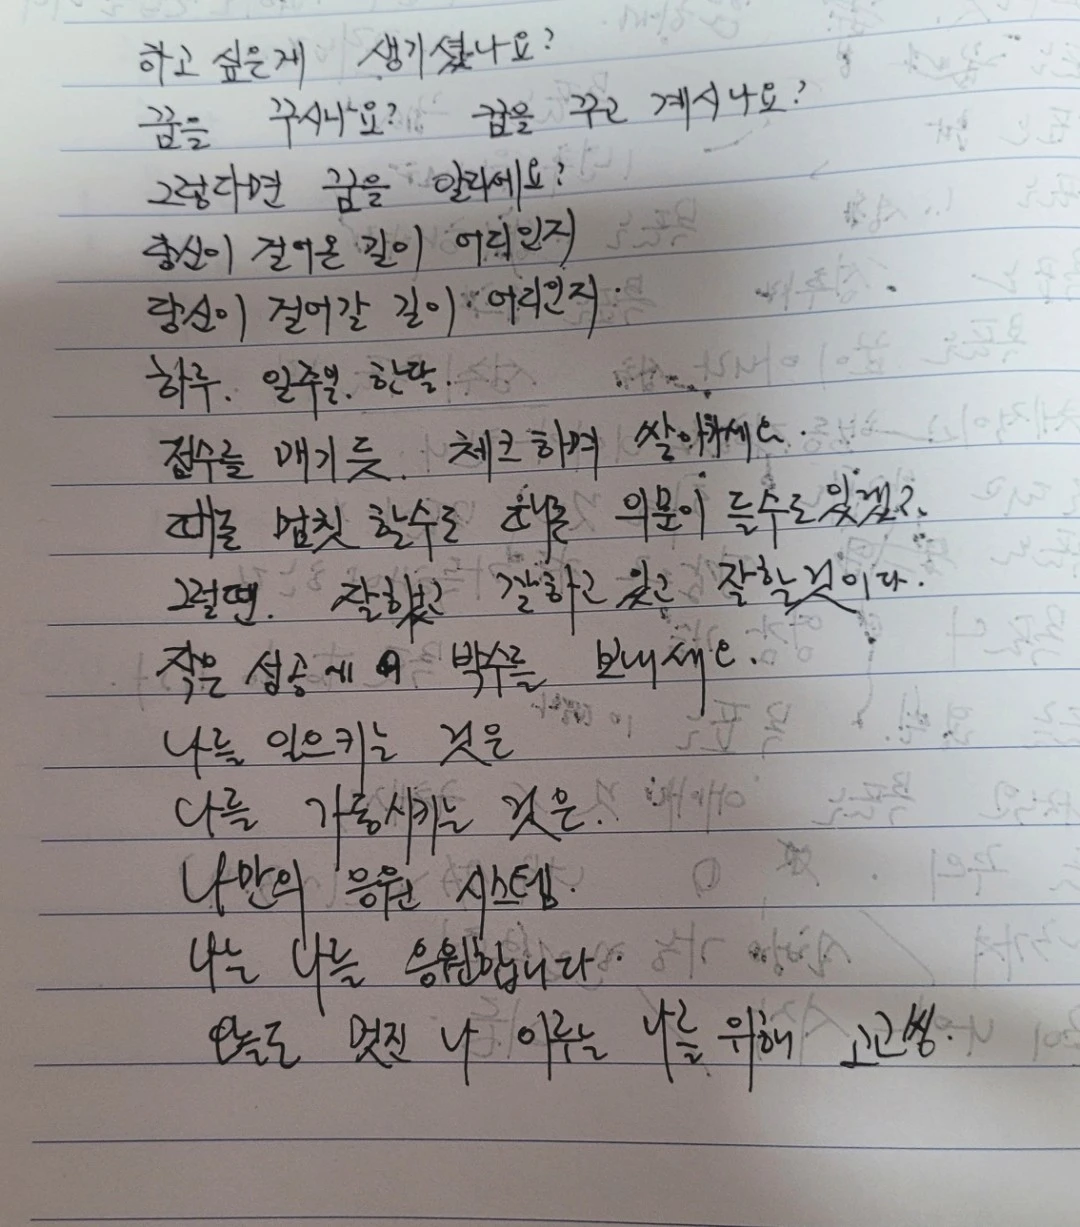 하고 싶은게 생기셨나요?
꿈을 꾸시나요? 꿈을 꾸고 계시나요?
그렇다면 꿈을 알리세요?
당신이 걸어온 길이 어디인지
당신이 걸어갈 길이 어디인지.
하루. 일주일. 한달.
점수를 매기듯. 체크하며 살아가세요.
때론 멈칫 할수도 의문이 들수도 있겠죠.
그럴땐. 잘했고 잘하고 있고 잘할것이다.
작은 성공에 박수를 보내세요.
나를 일으키는 것은
나를 가동시키는 것은.
나만의 응원 시스템.
나는 나를 응원합니다.
오늘도 멋진 나 이루는 나를 위해 고고씽.